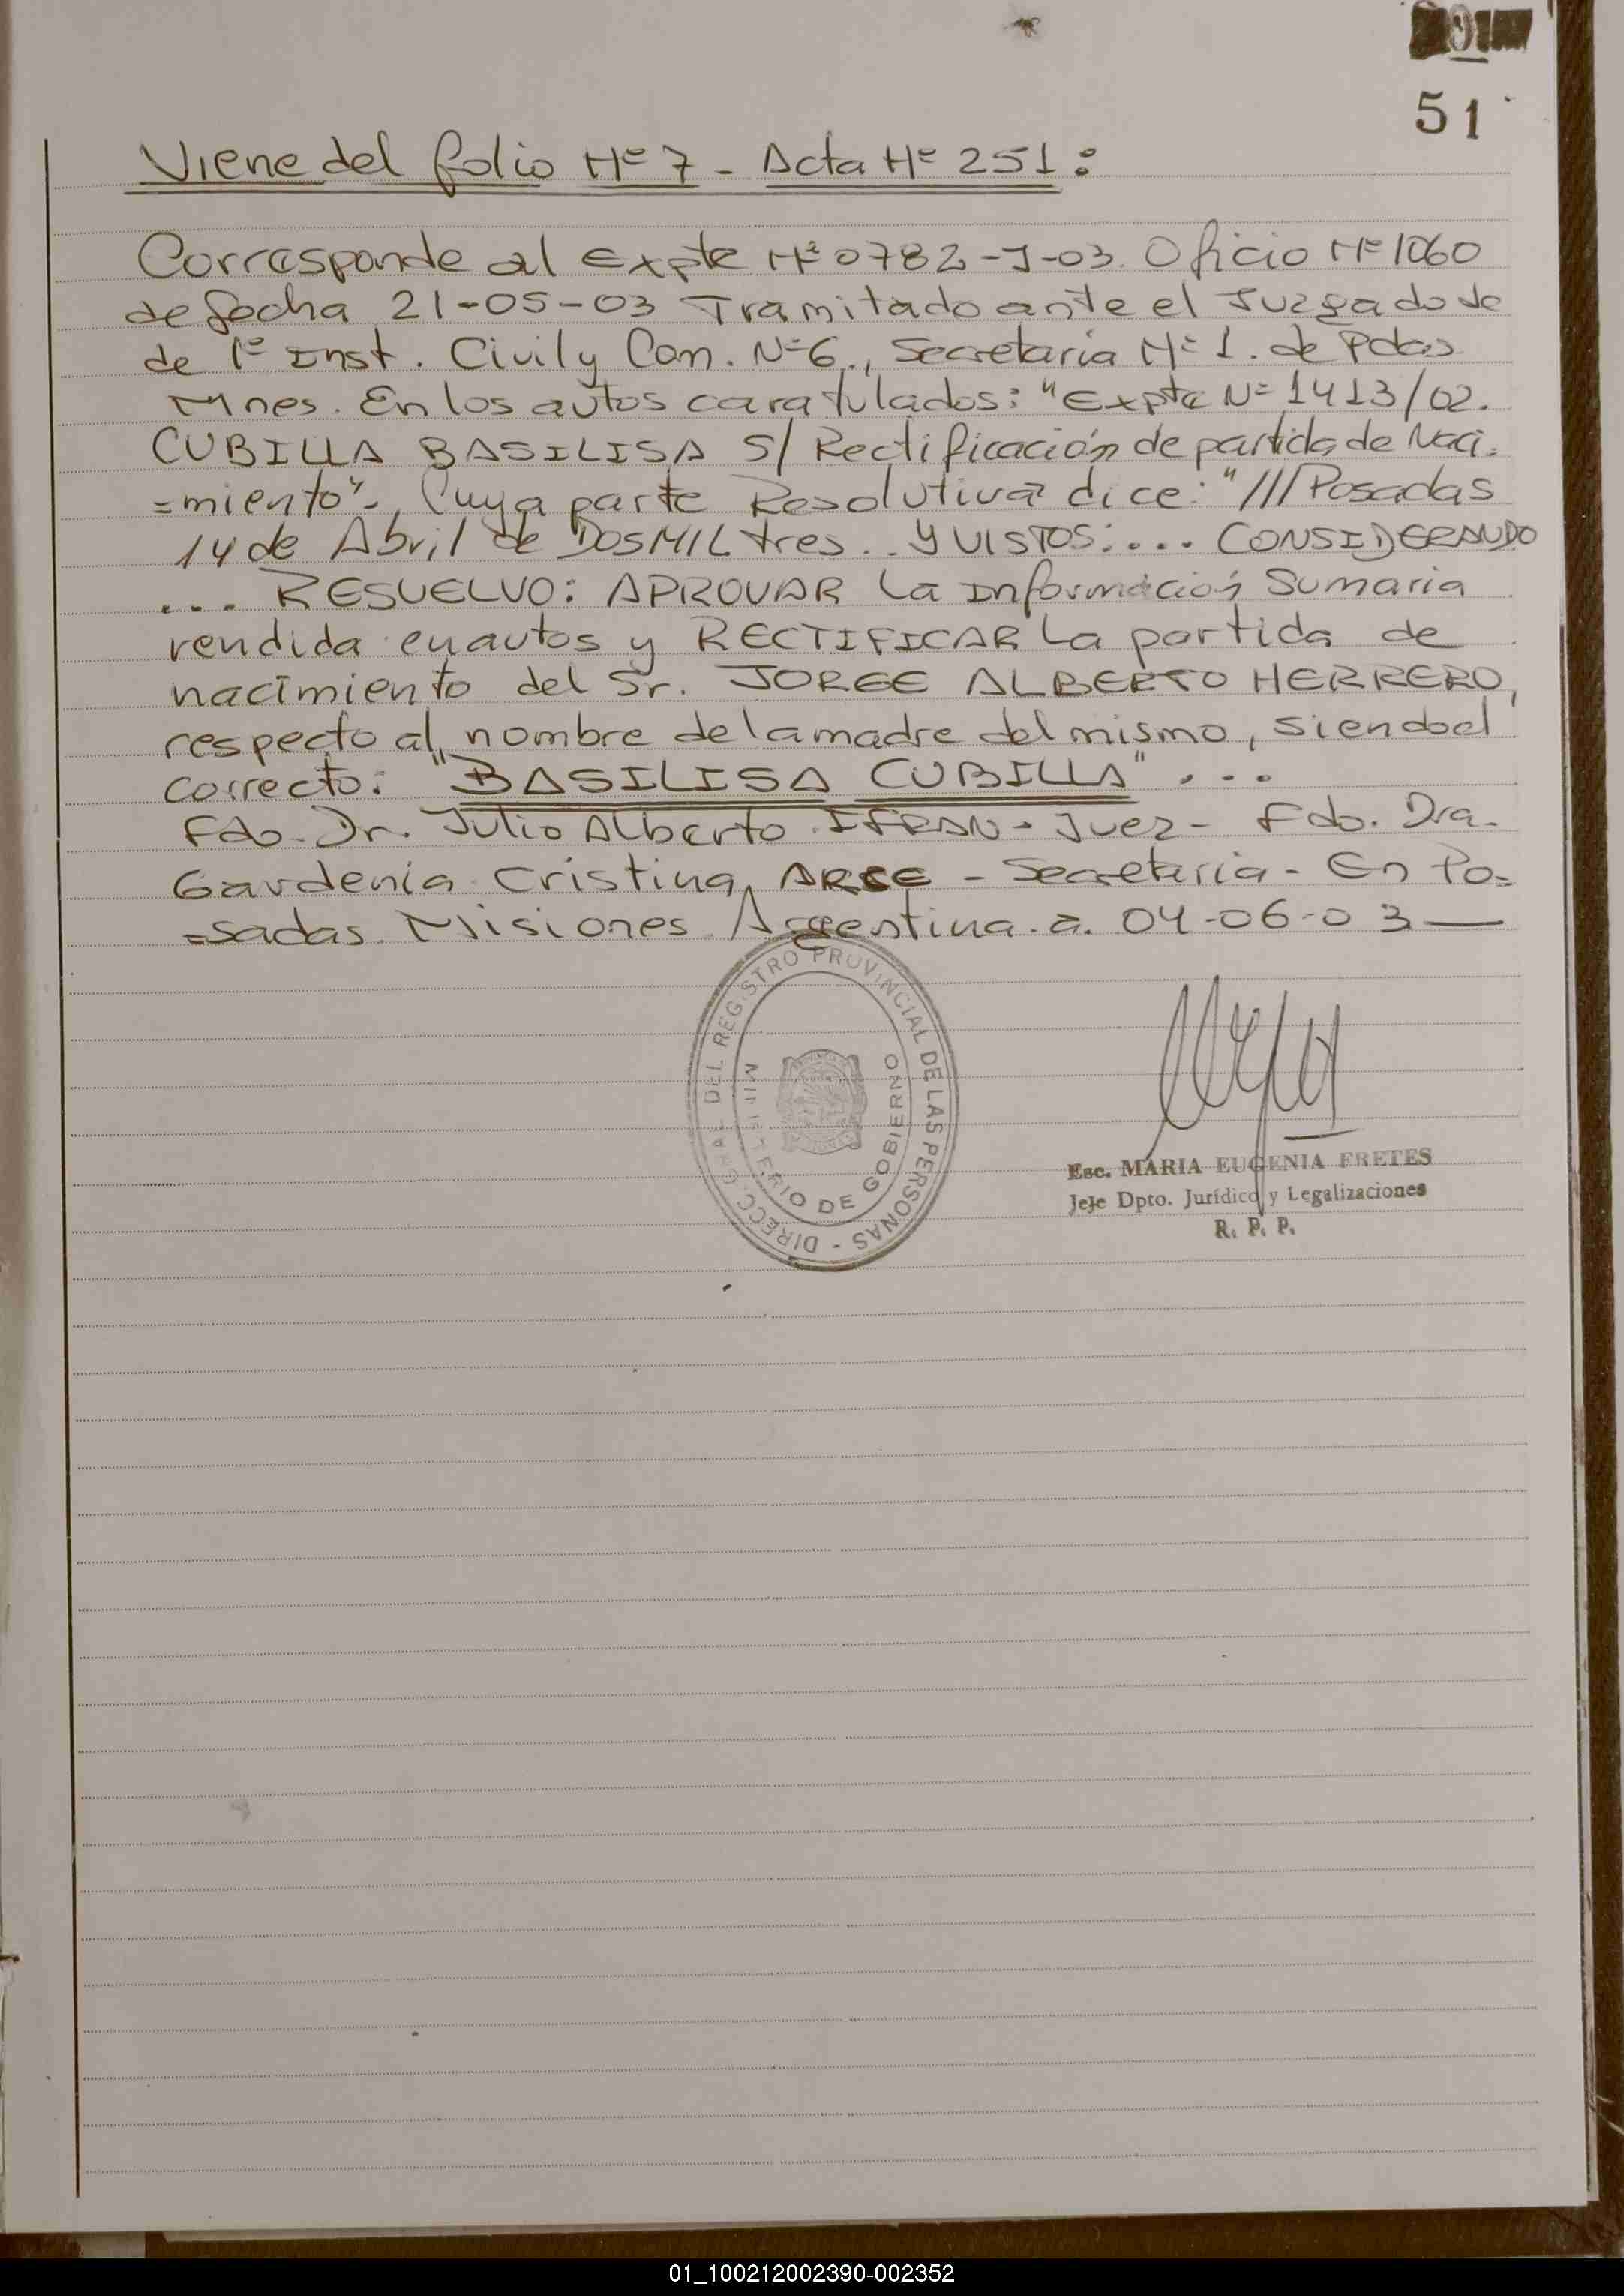 51
Viene del folio Nº 7 - Acta Nº 251:
Corresponde al Expte Nº 0782-J-03. Oficio Nº 1060
de fecha 21-05-03 Tramitado ante el Juzgado de
de 1º Inst. Civil y Com. Nº 6., Secretaria Nº 1. de Pdas
Mnes. En los autos caratulados: "Expte Nº 1413/02.
CUBILLA BASILISA S/ Rectificación de partida de Naci=
=miento"-, Cuya parte Resolutiva dice: "///Posadas
14 de Abril de DOSMIL tres.. Y VISTOS:.... CONSIDERANDO
... RESUELVO: APROVAR La Información Sumaria
rendida en autos y RECTIFICAR La partida de
nacimiento del Sr. JORGE ALBERTO HERRERO,
respecto al nombre de la madre del mismo, siendo el
correcto: "BASILISA CUBILLA"...
Fdo. Dr. Julio Alberto IFRAN - Juez - Fdo. Dra.
Gardenia Cristina ARCE - Secretaria - En Po=
=sadas Misiones Argentina. a. 04-06-03 —
DIRECC. GRAL. DEL REGISTRO PROVINCIAL DE LAS PERSONAS -
MINISTERIO DE GOBIERNO
Esc. MARIA EUGENIA FRETES
Jefe Dpto. Jurídico y Legalizaciones
R. P. P.
01_100212002390-002352